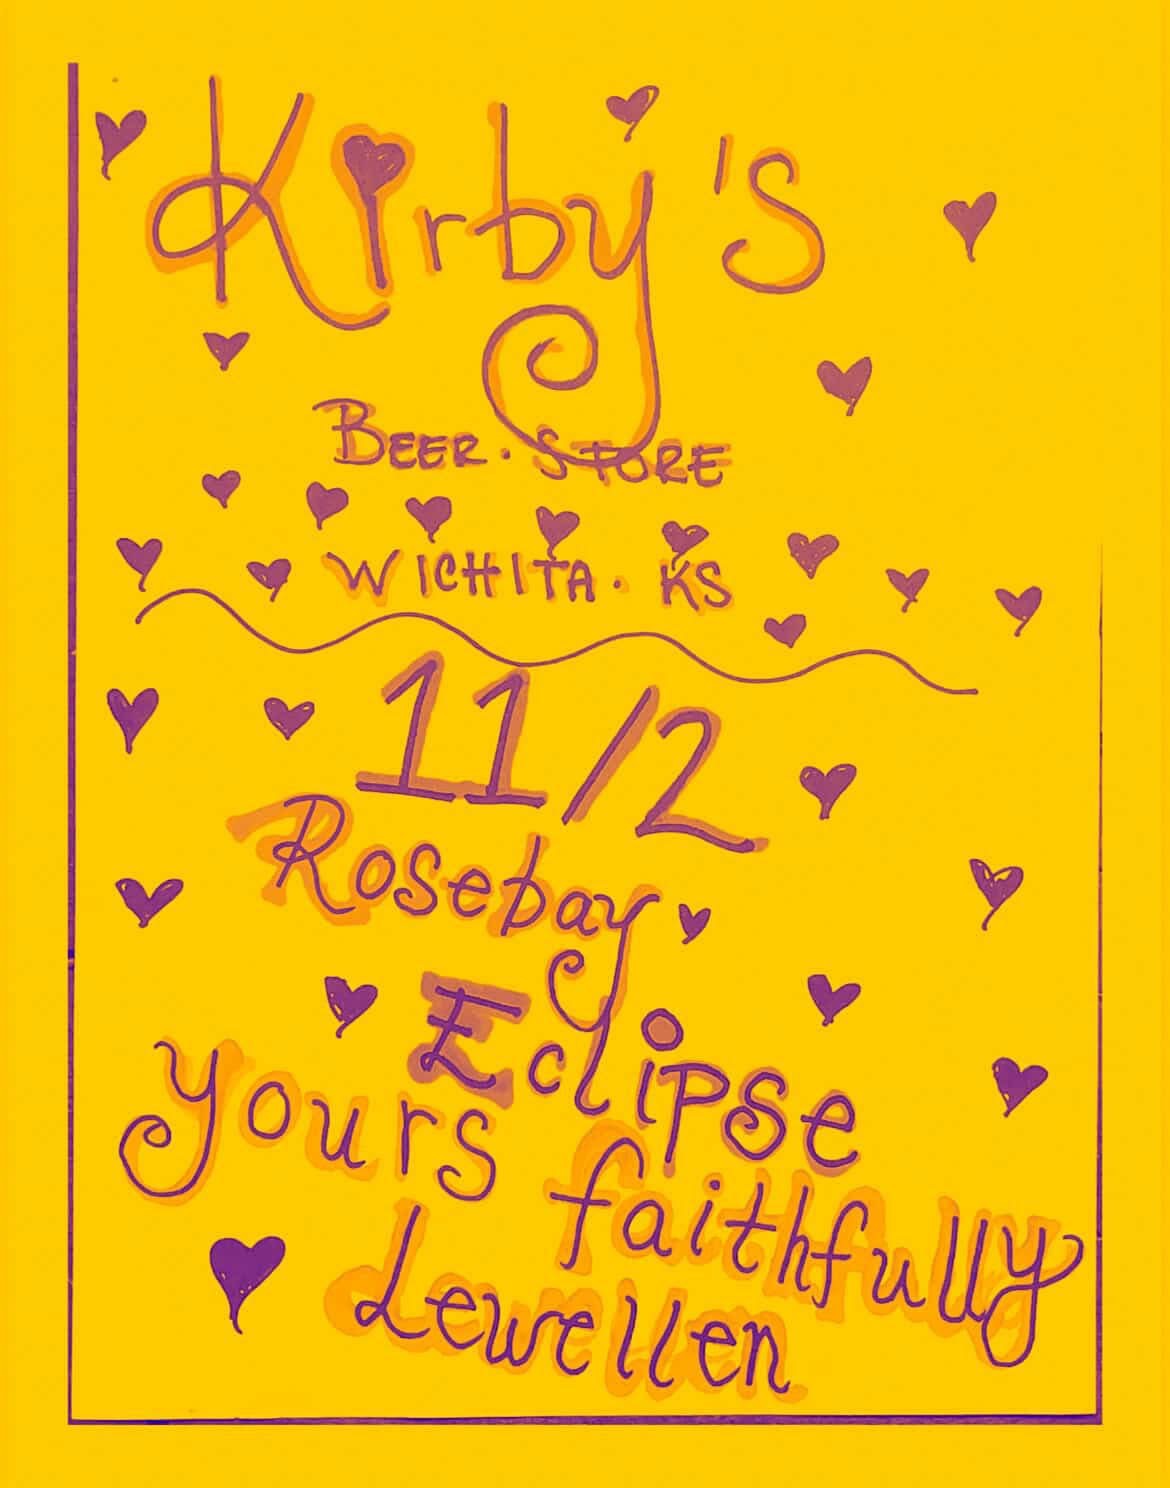 Kirby's
BEER. STORE
WICHITA. KS
11/2
Rosebay
Eclipse
yours faithfully
Lewellen